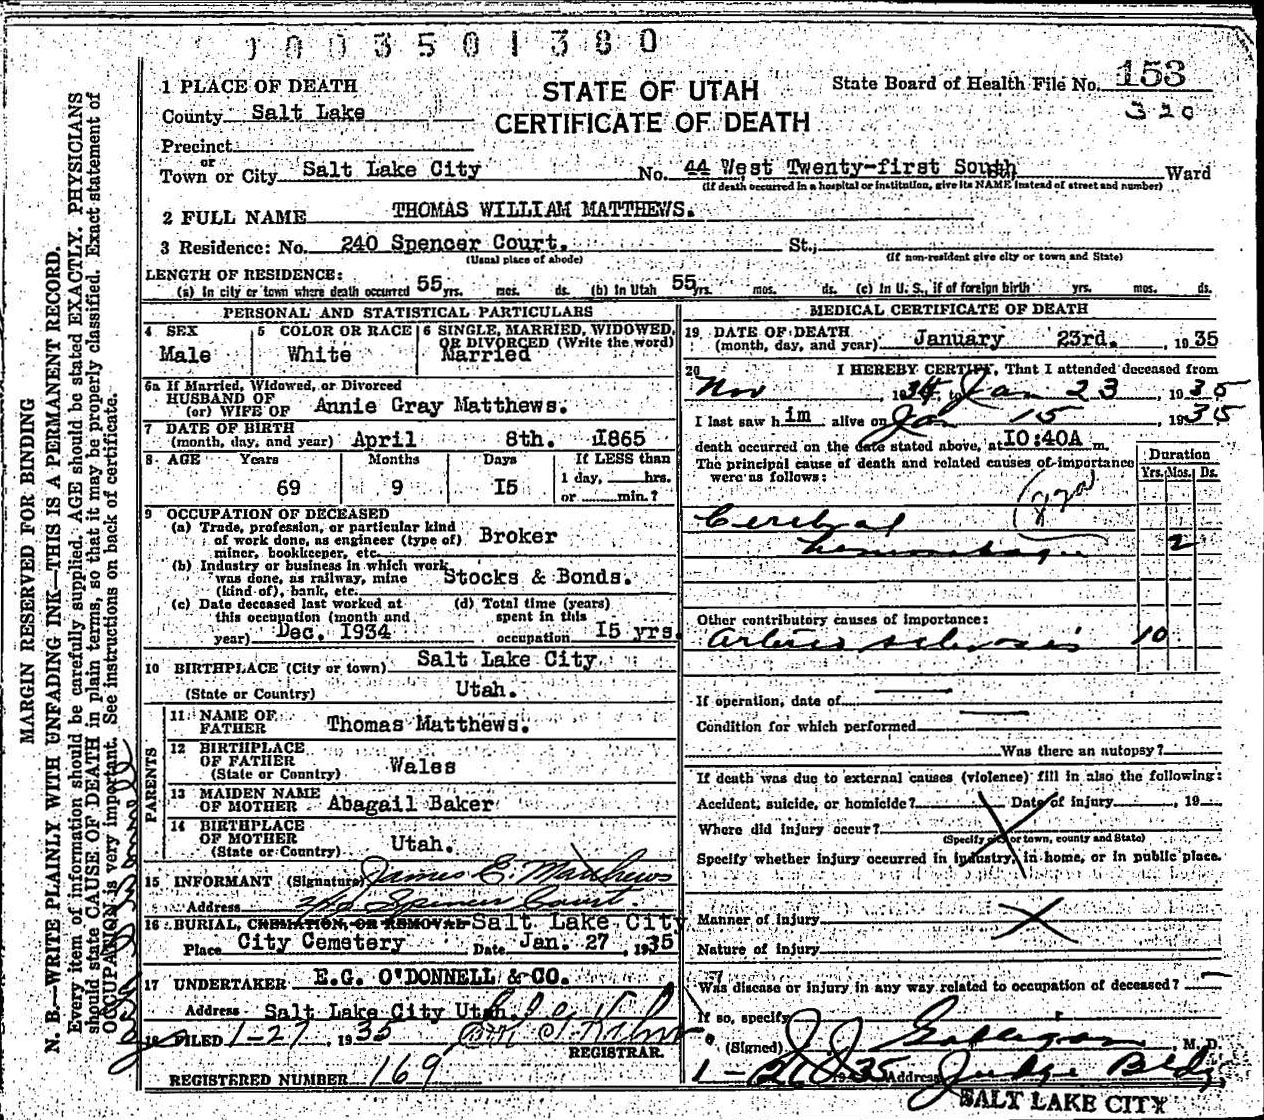 1003501380
1 PLACE OF DEATH
STATE OF UTAH
CERTIFICATE OF DEATH
State Board of Health File No. 153
320
County Salt Lake
Precinct
or
Town or City Salt Lake City No. 44 West Twenty-first South Ward
(If death occurred in a hospital or institution, give its NAME instead of street and number)
2 FULL NAME THOMAS WILLIAM MATTHEWS.
3 Residence: No. 240 Spencer Court. St.,
(Usual place of abode) (If non-resident give city or town and State)
LENGTH OF RESIDENCE:
(a) In city or town where death occurred 55 yrs. mos. ds. (b) In Utah 55 yrs. mos. ds. (c) In U. S., if of foreign birth yrs. mos. ds.
PERSONAL AND STATISTICAL PARTICULARS
4 SEX Male
5 COLOR OR RACE White
6 SINGLE, MARRIED, WIDOWED, OR DIVORCED (Write the word) Married
6a If Married, Widowed, or Divorced
HUSBAND OF
(or) WIFE OF Annie Gray Matthews.
7 DATE OF BIRTH
(month, day, and year) April 8th. 1865
8 AGE Years Months Days If LESS than
69 9 I5 1 day, hrs.
or min.?
9 OCCUPATION OF DECEASED
(a) Trade, profession, or particular kind
of work done, as engineer (type of)
miner, bookkeeper, etc. Broker
(b) Industry or business in which work
was done, as railway, mine
(kind of), bank, etc. Stocks & Bonds.
(c) Date deceased last worked at
this occupation (month and
year) Dec. I934
(d) Total time (years)
spent in this
occupation I5 yrs.
10 BIRTHPLACE (City or town) Salt Lake City
(State or Country) Utah.
PARENTS
11 NAME OF
FATHER Thomas Matthews.
12 BIRTHPLACE
OF FATHER
(State or Country) Wales
13 MAIDEN NAME
OF MOTHER Abagail Baker
14 BIRTHPLACE
OF MOTHER
(State or Country) Utah.
15 INFORMANT (Signature) James E. Matthews
Address 240 Spencer Court.
16 BURIAL, CREMATION, OR REMOVAL Salt Lake City
Place City Cemetery Date Jan. 27, 1935
17 UNDERTAKER E.G. O'DONNELL & CO.
Address Salt Lake City Utah.
18 FILED 1-27 1935
REGISTRAR.
REGISTERED NUMBER 169
MEDICAL CERTIFICATE OF DEATH
19 DATE OF DEATH
(month, day, and year) January 23rd. , 1935
20 I HEREBY CERTIFY, That I attended deceased from
Nov , 1934, to Jan 23 , 1935
I last saw him alive on Jan 15 , 1935
death occurred on the date stated above, at I0:40A m.
The principal cause of death and related causes of importance
were as follows:
Duration
Yrs. Mos. Ds.
(82a)
Cerebral
hemorrhage 2
Other contributory causes of importance:
Arterio sclerosis 10
If operation, date of
Condition for which performed
Was there an autopsy?
If death was due to external causes (violence) fill in also the following:
Accident, suicide, or homicide? Date of injury , 19
Where did injury occur?
(Specify city or town, county and State)
Specify whether injury occurred in industry, in home, or in public place.
Manner of injury
Nature of injury
Was disease or injury in any way related to occupation of deceased?
If so, specify
(Signed) J J Galligan , M. D.
1-26 1935 Address Judge Bldg
SALT LAKE CITY
MARGIN RESERVED FOR BINDING
N. B.—WRITE PLAINLY WITH UNFADING INK—THIS IS A PERMANENT RECORD.
Every item of information should be carefully supplied. AGE should be stated EXACTLY. PHYSICIANS
should state CAUSE OF DEATH in plain terms, so that it may be properly classified. Exact statement of
OCCUPATION is very important. See instructions on back of certificate.